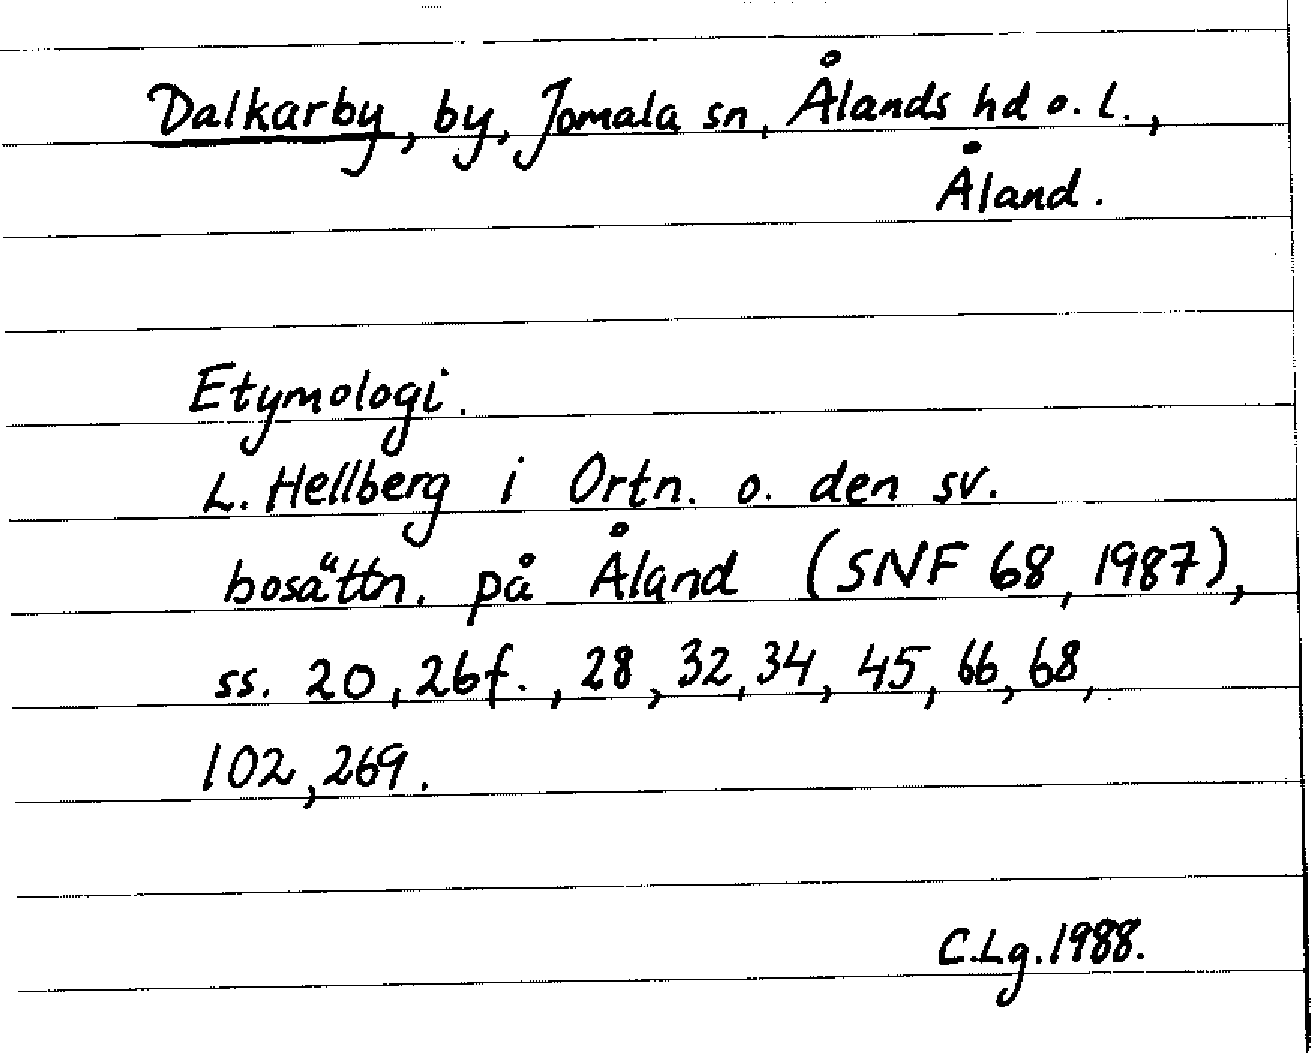 Dalkarby, by, Jomala sn, Ålands hd o. l.,
Åland.
Etymologi.
L. Hellberg i Ortn. o. den sv.
bosättn. på Åland (SNF 68, 1987),
ss. 20, 26f., 28, 32, 34, 45, 66, 68,
102, 269.
C.Lg. 1988.